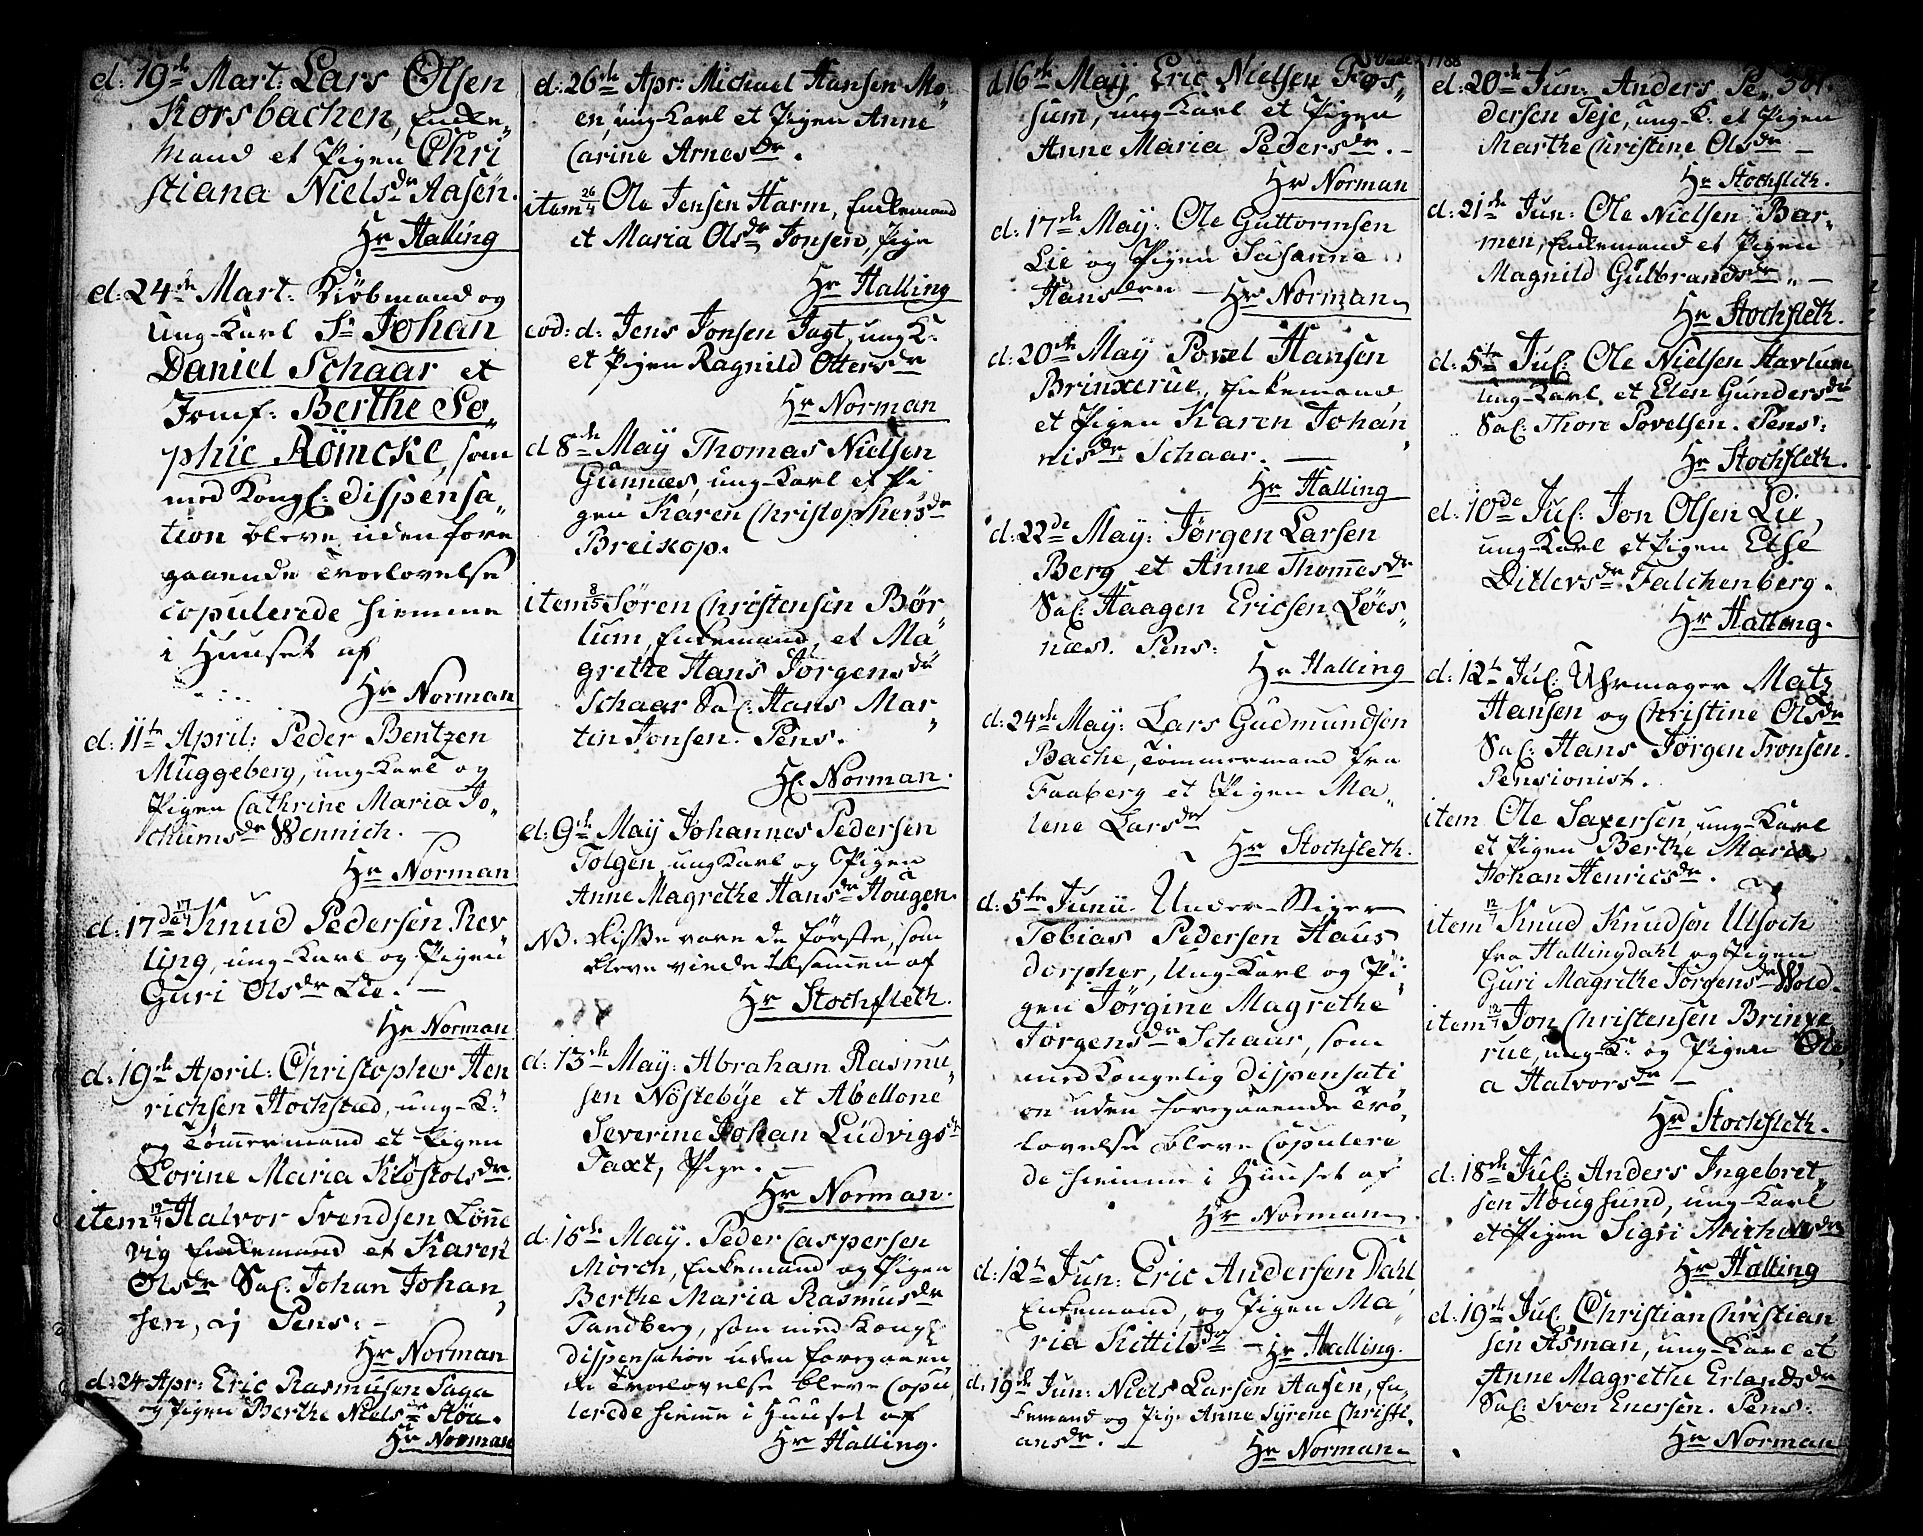 d: 19de Mart: Lars Olsen
Korsbachen, Enke„
mand et Pigen Chri
stiana Nielsdr Aasen.
Hr Halling
d: 24de Mart: Kiöbmand og
Ung-Karl Sr Johan
Daniel Schaar et
Jomf: Berthe So„
phie Römcke, som
med Kongl: dispensa„
tion bleve uden fore
gaaende Trolovelse
copulerede hiemme
i Huuset af
Hr Norman
d: 11te April: Peder Bentzen
Muggeberg, ung-Karl og
Pigen Cathrine Maria Jo„
chumsdr Wennich. —
Hr Norman
d: 17de 17/4 Knud Pedersen Rev„
ling, ung-Karl og Pigen
Guri Olsdr Lie. —
Hr Norman
d: 19de April: Christopher Hen
richsen Hochstad, ung-K:
og Tömmermand et Pigen
Lorine Maria Klöstolsdr.
item 19/4 Halvor Svendsen Lönne
vig Enkemand et Karen
Olsdr Sal: Johan Johan„
sen, Pens: —
Hr Norman
d: 24 Apr: Eric Rasmusen Saga
og Pigen Berthe Nielsdr Stöa.
Hr Norman
d: 26de Apr: Michael Hansen Mo„
en, ung-Karl et Pigen Anne
Carine Arnesdr.
item 26/4 Ole Jensen Harm, Enkemand
et Maria Olsdr Jonsen, Pige
Hr Halling
eod: d: Jens Jonsen Jagt, ung K:
et Pigen Ragnild Ottersdr
Hr Norman
d 8de May Thomas Nielsen
Gunnæs, ung-Karl et Pi
gen Karen Christophersdr
Breiskop.
item 8/5 Søren Christensen Bør„
lum, Enkemand, et Ma„
grethe Hans Jörgensdr
Schaar Sal: Hans Mar„
tin Jonsen. Pens.
Hr Norman.
d: 9de May Johannes Pedersen
Tolgen, ung Karl og Pigen
Anne Magrethe Hansdr Hougen.
NB. disse vare de förste, som
bleve viede tilsammen af
Hr Stochfleth.
d: 13de May: Abraham Rasmu„
sen Nöstebye et Abellone
Severine Johan Ludvigsdr
Taxt, Pige.
Hr Norman.
d: 16de May. Peder Caspersen
Mörch, Enkemand og Pigen
Berthe Maria Rasmusdr
Tandberg, som med Kongl:
dispensation uden foregaaen„
de Trolovelse bleve Copu„
lerede hiemme i Huuset af
Hr Halling.
d 16de May Eric Nielsen Fos„
sum, ung-Karl et Pigen
Anne Maria Pedersdr. —
Hr Norman
d: 17de May: Ole Guttormsen
Lie og Pigen Susanne
Hansdttr — Hr Norman
d: 20de May Povel Hansen
Brinkerue, Enkemand,
et Pigen Karen Johan„
nisdr Schaar. —
Hr Halling
d: 22de May: Jørgen Larsen
Berg et Anne Thomesdr
Sal: Haagen Ericsen Löes„
næs. Pens:
Hr Halling
d: 24de May: Lars Gudmundsen
Bache, Tömmermand fra
Faaberg et Pigen Ma„
lene Larsdr
Hr Stochfleth.
d: 5te Junii Under-Stiger
Tobias Pedersen Haus
dorpher, Ung-Karl og Pi„
gen Jørgine Magrethe
Jørgensdr Schaar, som
med Kongelig dispensati
on uden foregaaende Tro„
lovelse bleve Copulere
de hiemme i Huuset af
Hr Norman.
d: 12te Jun: Eric Andersen Dahl
Enkemand, og Pigen Ma„
ria Kittilsdr — Hr Halling.
d: 19de Jun: Niels Larsen Aasen, En„
kemand og Pig. Anne Syrene Christi„
ansdr. — Hr Norman.
1788
d: 20de Jun: Anders Pe„ 381.
dersen Teje, ung-K: et Pigen
Marthe Christine Olsdr —
Hr Stochfleth.
d: 21de Jun: Ole Nielsen Bar„
men, Enkemand et Pigen
Magnild Gulbrandsdr. —
Hr Stochfleth.
d: 5te Jul: Ole Nielsen Havlum
ung-Karl, et Elen Gundersdr
Sal: Thore Povelsen. Pens:
Hr Stochfleth.
d: 10de Jul: Jon Olsen Lie,
ung-Karl et Pigen Else
Ditlevsdr Falchenberg.
Hr Halling.
d: 12te Jul: Uhrmager Matz
Hansen og Christine Olsdr
Sal: Hans Jørgen Tronsen.
Pensionist.
item Ole Saxersen, ung-Karl
et Pigen Berthe Maria
Johan Henricsdr.
item 12/7 Knud Knudsen Ulsoch
fra Hallingdahl og Pigen
Guri Magrethe Jörgensdr Wold.
item 12/7 Jon Christensen Brinke
rue, ung-K: og Pigen Ole„
a Halvorsdr —
Hr Stochfleth.
d: 18de Jul: Anders Ingebret„
sen Hougsund, ung-Karl
et Pigen Sigri Michelsdr
Hr Halling
d: 19de Jul: Christian Christian
sen Asman, ung-Karl et
Anne Magrethe Erlandsdr
Sal: Sven Enersen. Pens:
Hr Norman